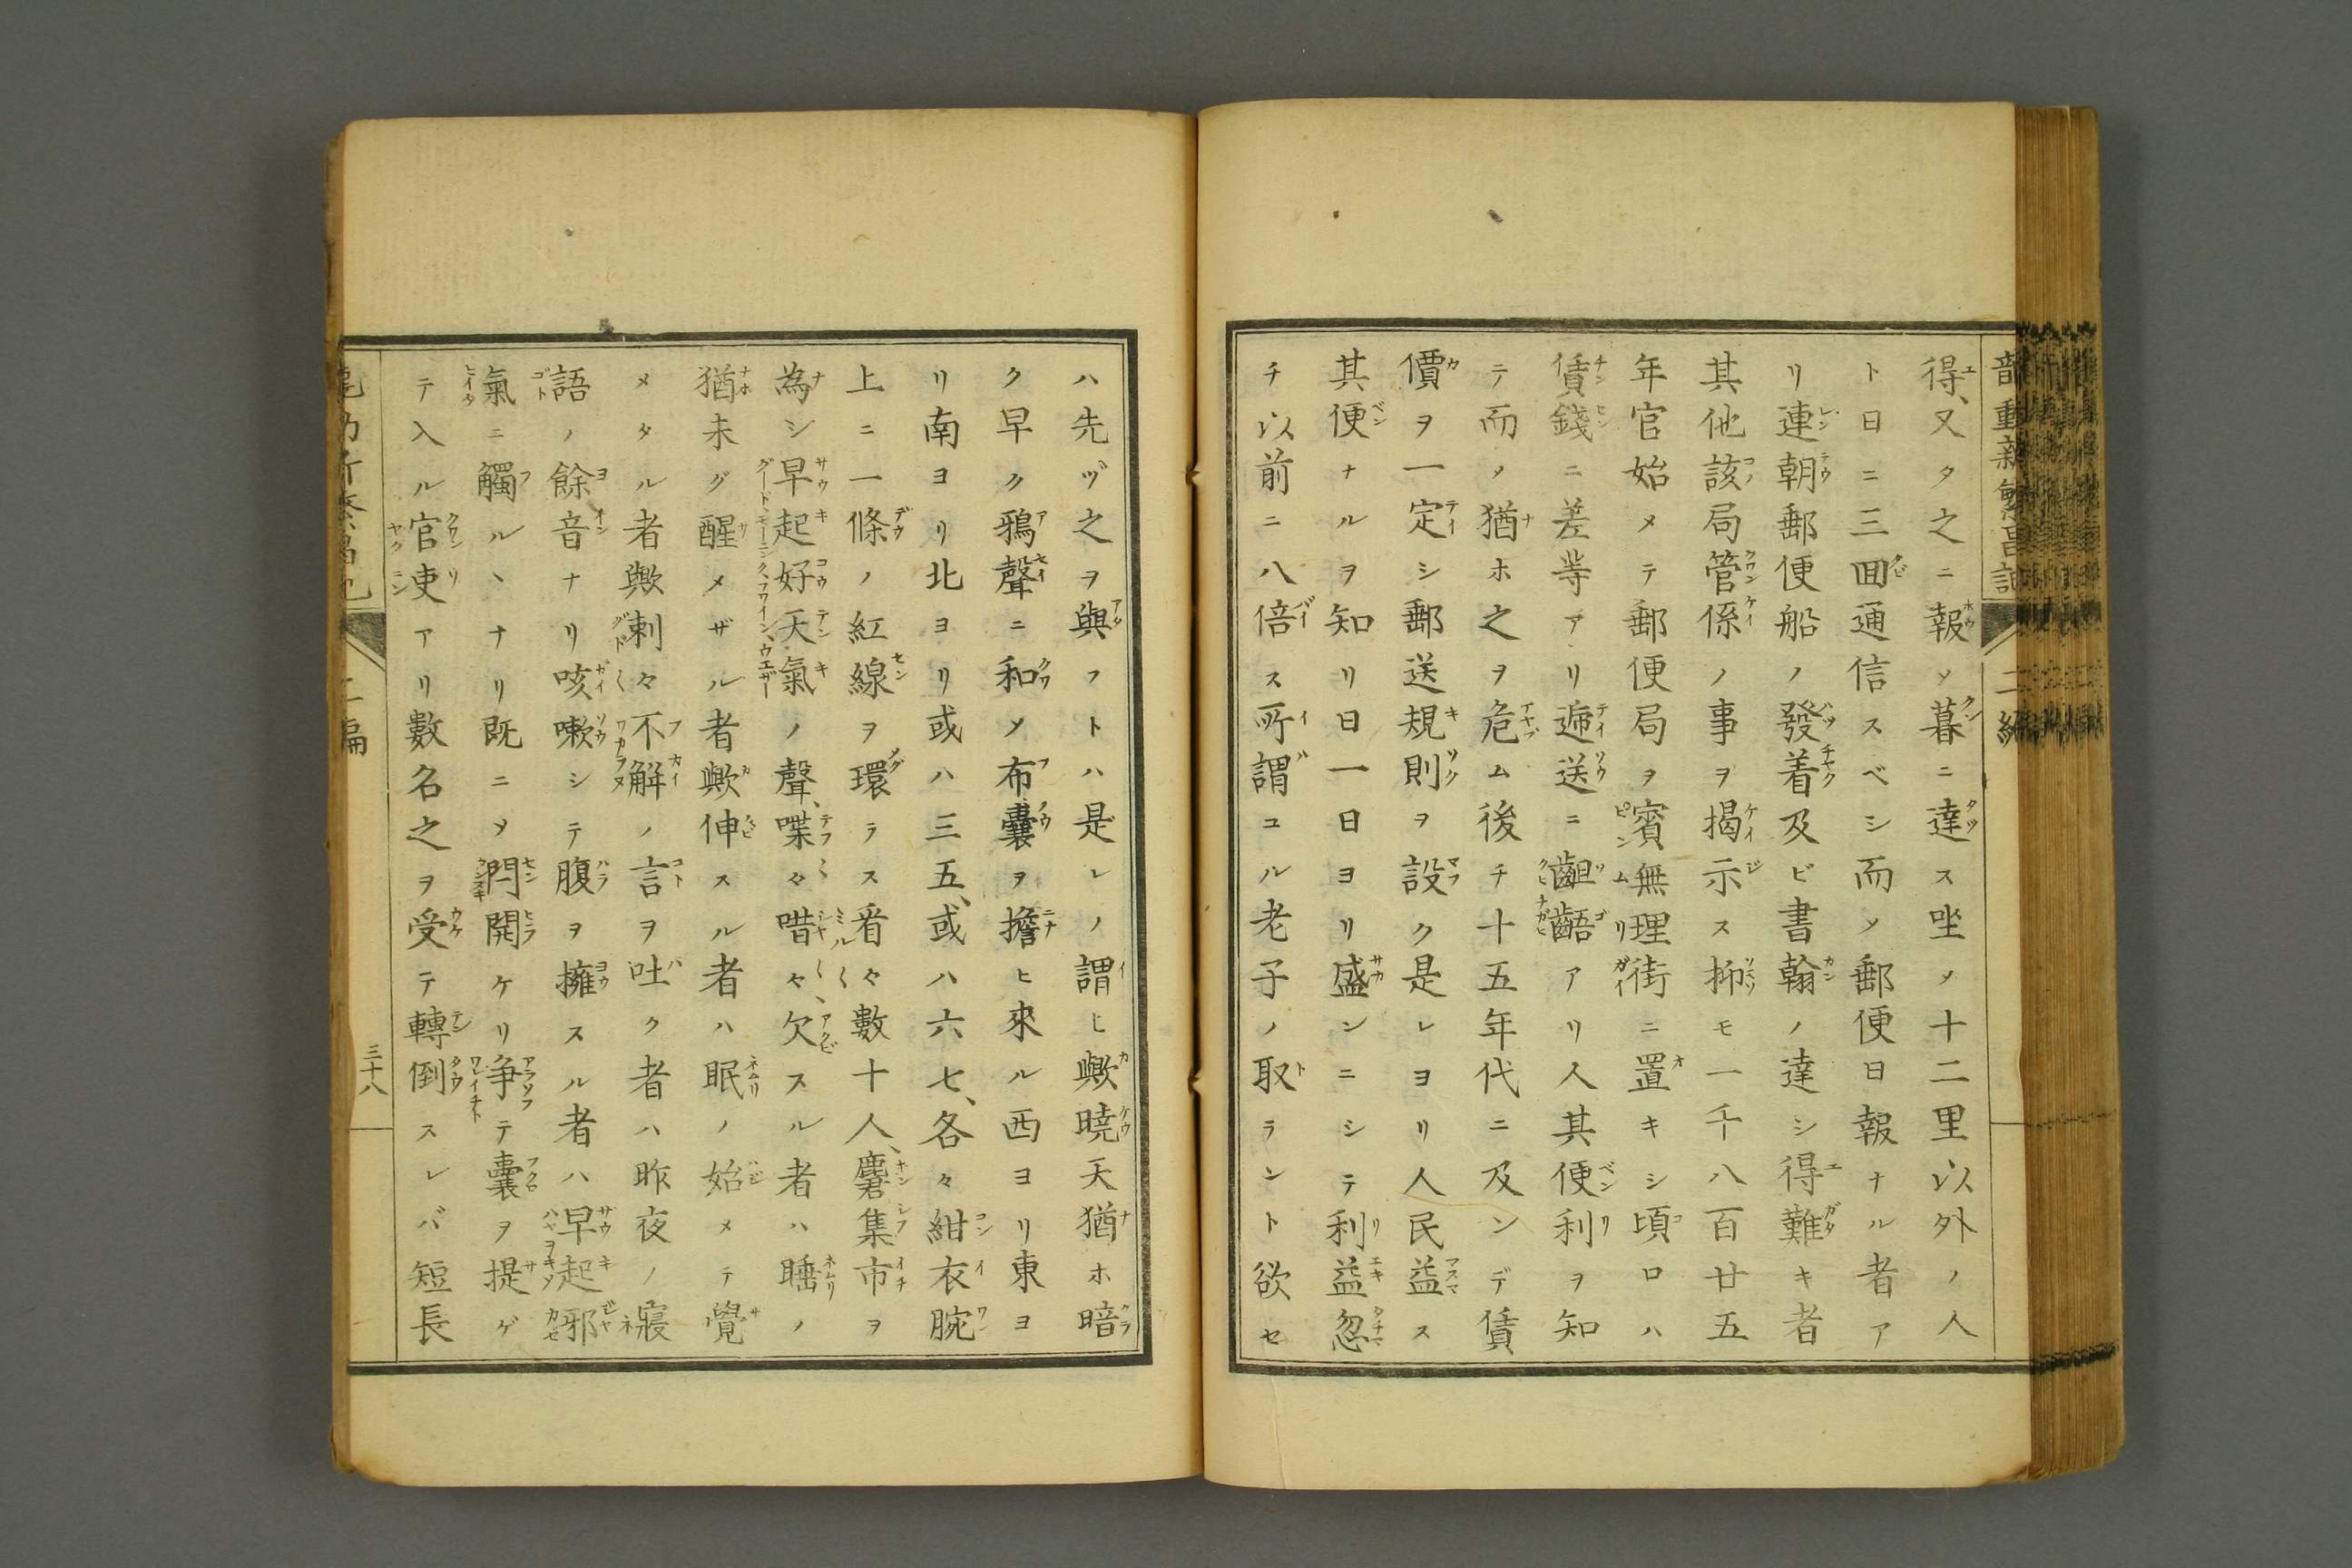 得、又タ之ニ報ソ暮ニ達ス坐メ十二里以外ノ人
ト日ニ三囬通信スベシ而メ郵便日報ナル者ア
リ連朝郵便船ノ發着及ビ書翰ノ達シ得難キ者
其他該局管係ノ事ヲ揭示ス抑モ一千八百廿五
年官始メテ郵便局ヲ賓無理街ニ置キシ頃ロハ
賃錢ニ差等アリ逓送ニ齟齬アリ人其便利ヲ知
テ而メ猶ホ之ヲ危ム後チ十五年代ニ及ンデ賃
價ヲ一定シ郵送規則ヲ設ク是レヨリ人民益ス
其便ナルヲ知リ日一日ヨリ盛ンニシテ利益忽
チ以前ニ八倍ス所謂ユル老子ノ取ラント欲セ
ハ先ヅ之ヲ與フトハ是レノ謂ヒ歟曉天猶ホ暗
ク早ク鴉聲ニ和メ布囊ヲ擔ヒ來ル西ヨリ東ヨ
リ南ヨリ北ヨリ或ハ三五、或ハ六七、各々紺衣腕
上ニ一條ノ紅線ヲ環ラス看々數十人、麕集市ヲ
為シ早起好天氣ノ聲、喋々喈々、欠スル者ハ睡ノ
猶未グ醒メザル者歟伸スル者ハ眠ノ始メテ覺
メタル者歟剌々不解ノ言ヲ吐ク者ハ昨夜ノ寢
語ノ餘音ナリ咳嗽シテ腹ヲ擁スル者ハ早起邪
氣ニ觸ルヽナリ既ニメ閂開ケリ争テ囊ヲ提ゲ
テ入ル官吏アリ數名之ヲ受テ轉倒スレバ短長
二編
三十八